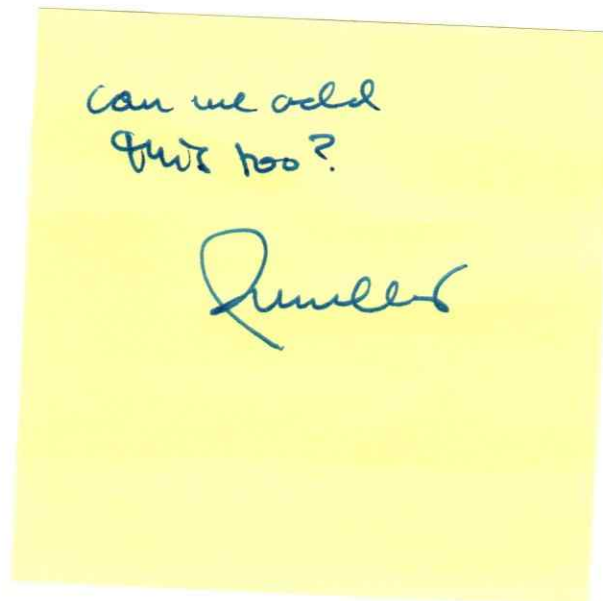 can we add
this too?